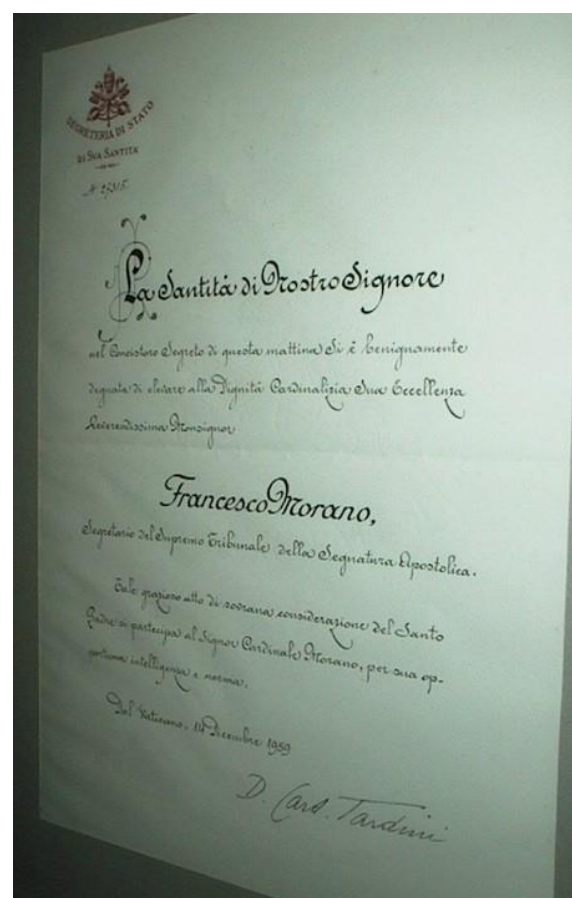 SEGRETERIA DI STATO
DI SUA SANTITÀ
La Santità di Nostro Signore
nel Concistoro Segreto di questa mattina Si è benignamente
degnata di elevare alla Dignità Cardinalizia Sua Eccellenza
Reverendissima Monsignor
Francesco Morano,
Segretario del Supremo Tribunale della Segnatura Apostolica.
Tale grazioso atto di sovrana considerazione del Santo
Padre si partecipa al Signor Cardinale Morano, per sua op-
portuna intelligenza e norma.
Dal Vaticano, 14 Dicembre 1959
D. Card. Tardini